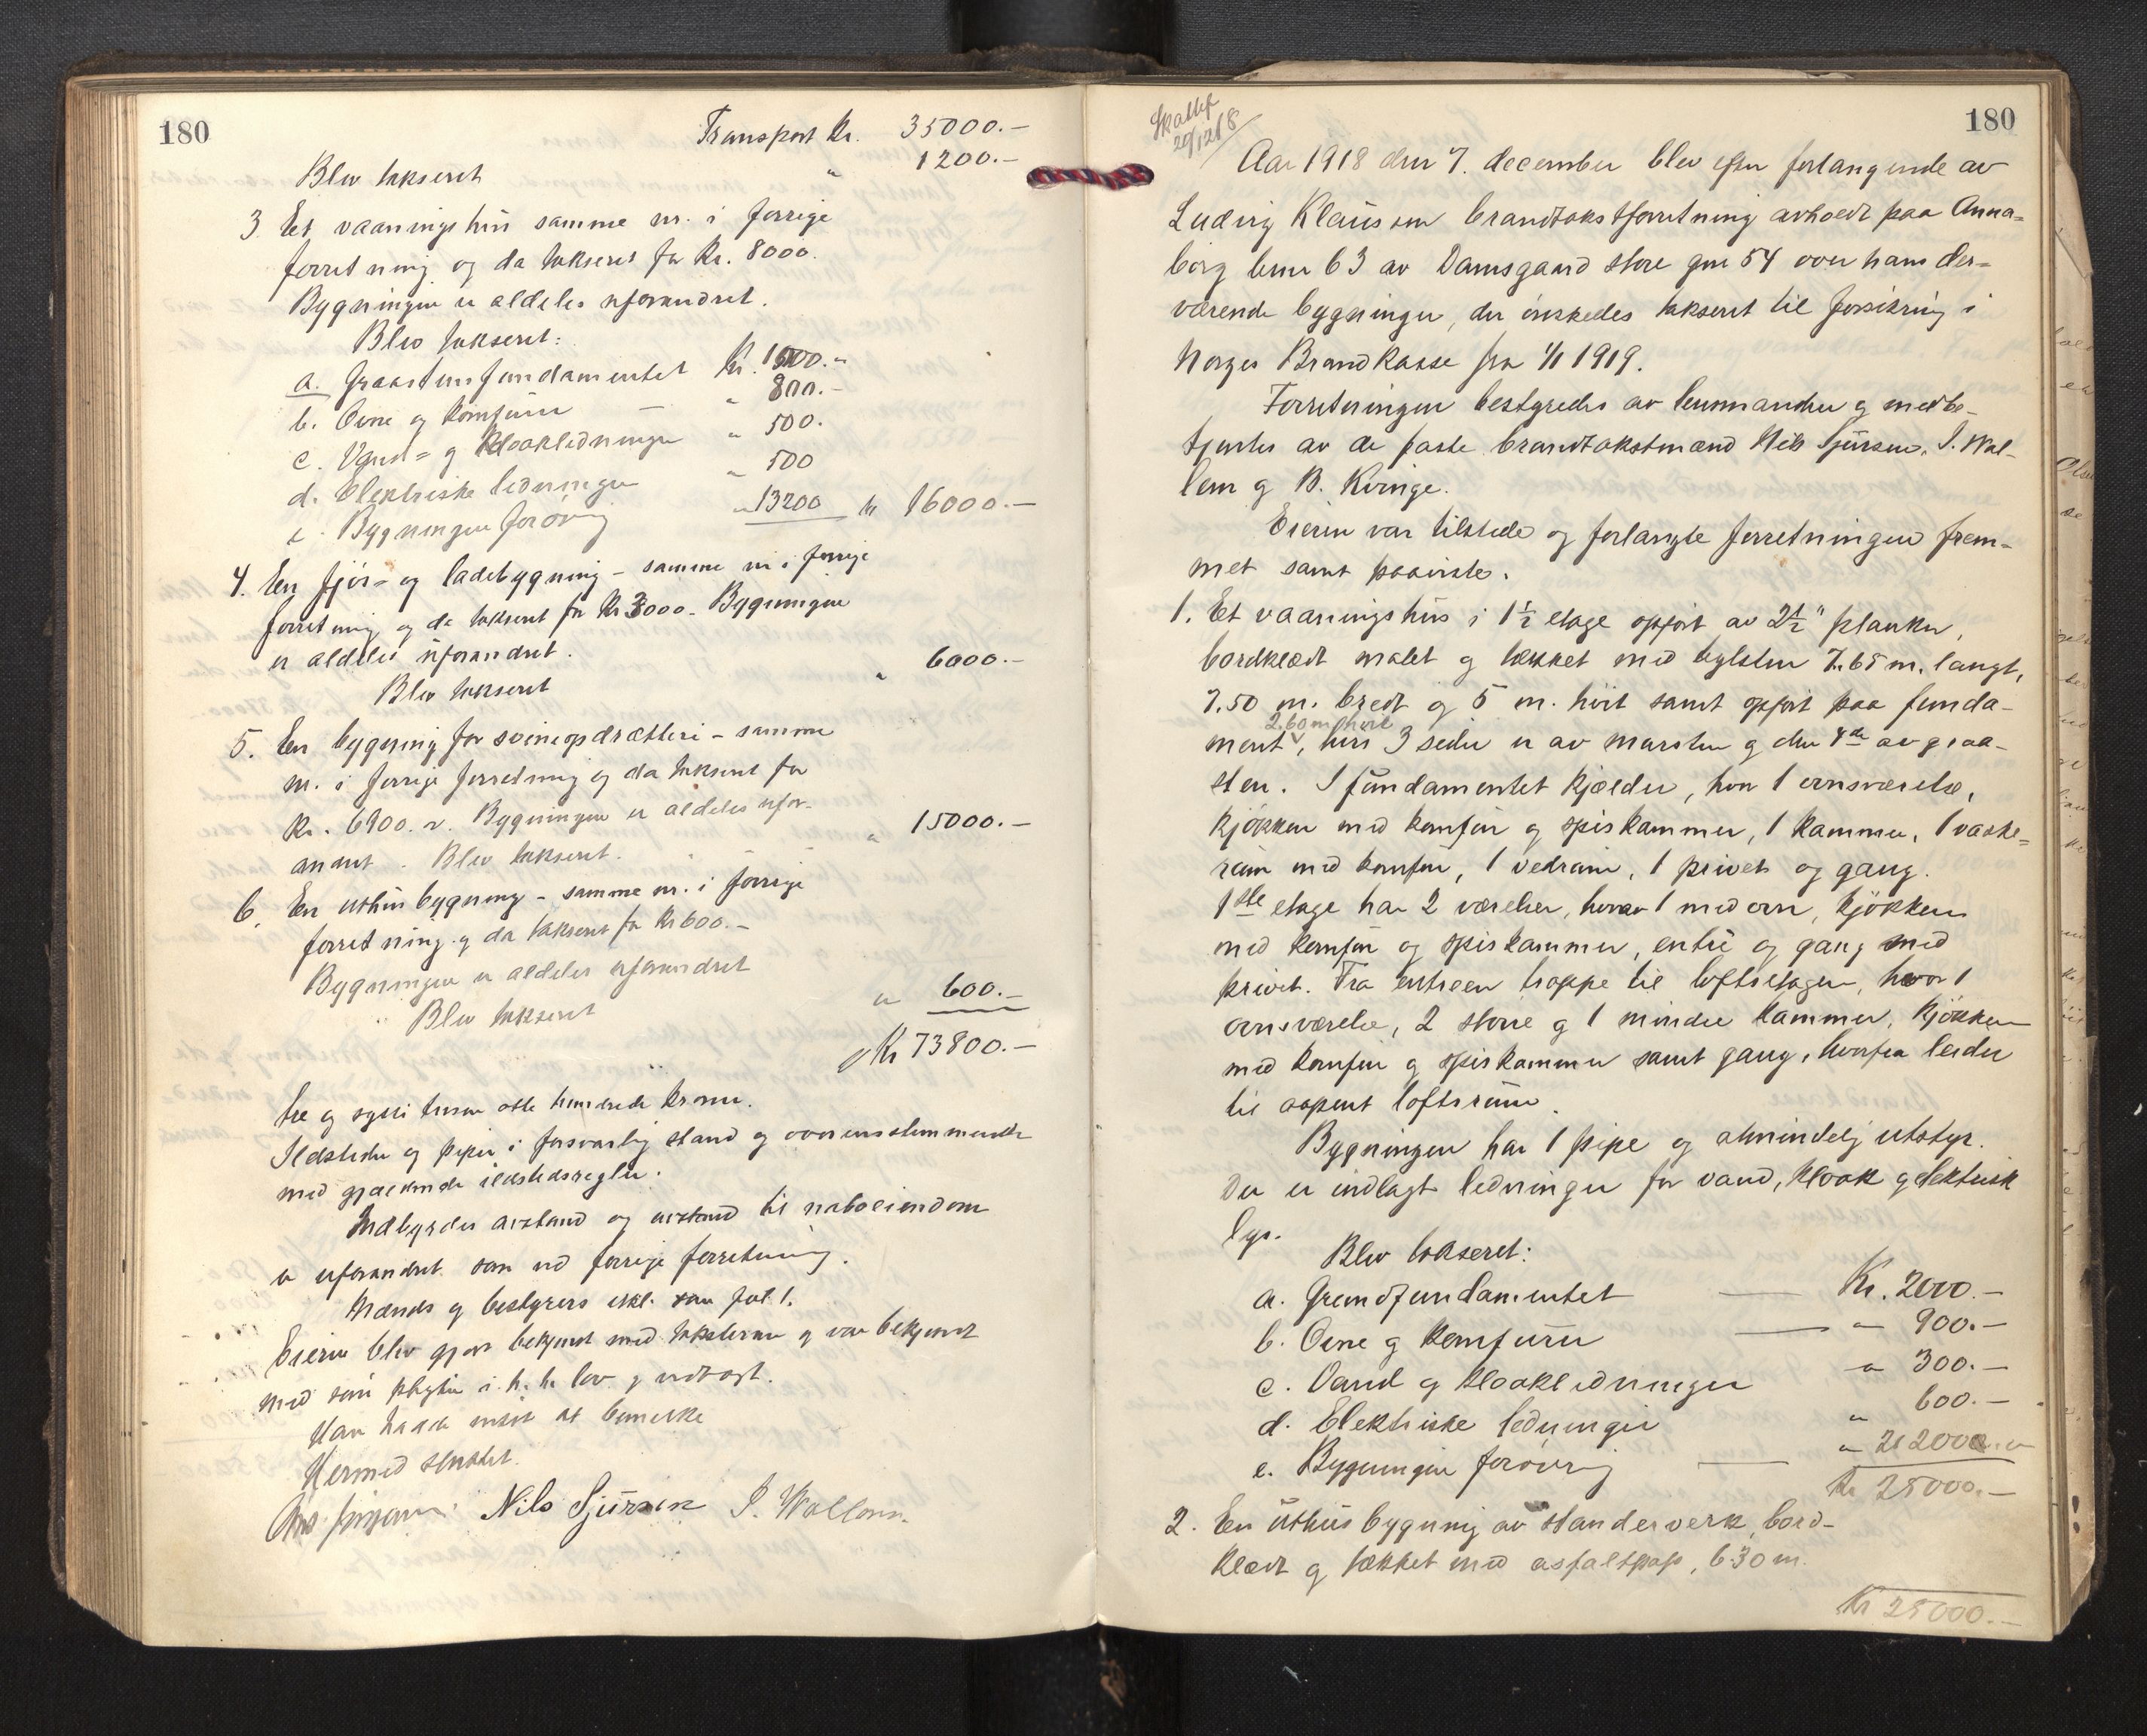 180
Transport Kr. 35000.-
Blev takseret " 1200.-
3. Et vaaningshus samme nr. i forrige
forretning og da takseret for Kr. 8000.
Bygningen er aldeles uforandret.
Blev takseret:
a. Graastensfundamentet Kr. 1000.-
b. Ovne og komfurer — " 800.-
c. Vand- og kloakledninger " 500.
d. Elektriske ledninger " 500
e. Bygningen forøvrig " 13200 kr 16000.-
4. En fjøs- og ladebygning - samme nr i forrige
forretning og da takseret for Kr 3000.- Bygningen
er aldeles uforandret.
Blev takseret " 6000.-
5. En bygning for svineopdrætteri - samme
nr. i forrige forretning og da takseret for
Kr. 6900. Bygningen er aldeles ufor-
andret. Blev takseret. " 15000.-
6. En uthusbygning - samme nr. i forrige
forretning og da takseret for Kr 600.-
Bygningen er aldeles uforandret
Blev takseret " 600.-
Kr 73800.-
tre og sytti tusen otte hundrede kroner.
Ildsteder og piper i forsvarlig stand og overensstemmende
med gjældende ildstedsregler.
Indbyrdes avstand og avstand til naboeiendom
er uforandret som ved forrige forretning.
Mænds og bestyrers erkl. som fol 1.
Eieren blev gjort bekjendt med taksterne og var bekjendt
med sine pligter i. h. t. lov og vedtægt.
Han hadde intet at bemerke
Hermed sluttet.
Nils Sjursen I. Wallem.
180
20/12 18
Aar 1918 den 7. december blev efter forlangende av
Ludvig Klausson brandtakstforretning avholdt paa Anna-
borg bnr 63 av Damsgaard store gnr 54 over hans der-
værende bygninger, der ønskedes takseret til forsikring i
Norges Brandkasse fra 1/1 1919.
Forretningen bestyredes av lensmanden og medbe-
tjentes av de faste brandtakstmænd Nils Sjursen, I. Wal-
lem og B. Kvinge.
Eieren var tilstede og forlangte forretningen frem-
met samt paaviste.
1. Et vaaningshus i 1½ etage opført av 2½" planker,
bordklædt malet og tækket med tagsten 7.65 m. langt,
7.50 m. bredt og 5 m. høit samt opført paa funda-
2.60 m høit
ment, hvis 3 sider er av mursten og den 4de av graa-
sten. I fundamentet kjælder, hvor 1 ovnsværelse,
kjøkken med komfur og spiskammer, 1 kammer, 1 vaske-
rum med komfur, 1 vedrum, 1 privet og gang.
1ste etage har 2 værelser, hvorav 1 med ovn, kjøkken
med komfur og spiskammer, entre og gang med
privet. Fra entreen trappe til loftsetagen, hvor 1
ovnsværelse, 2 større og 1 mindre kammer, kjøkken
med komfur og spiskammer samt gang, hvorfra leider
til aapent loftsrum.
Bygningen har 1 pipe og almindelig utstyr.
Der er indlagt ledninger for vand, kloak og elektrisk
lys.
Blev takseret:
a. Grundfundamentet — Kr. 2000.-
b. Ovne og komfurer — " 900.-
c. Vand og kloakledninger " 300.-
d. Elektriske ledninger " 600.-
e. Bygningen forøvrig — " 21200.-
Kr 25000.-
2. En uthusbygning av standerverk, bord-
klædt og tækket med asfaltpap, 6.30 m.
Kr 25000.-